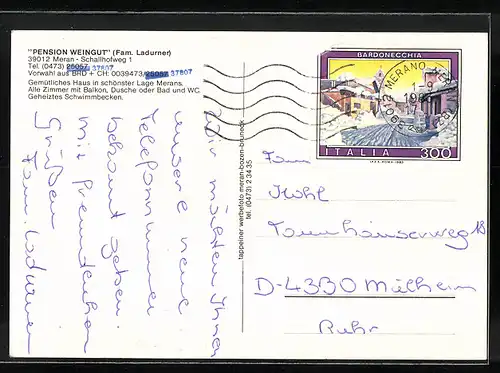 "PENSION WEINGUT" (Fam. Ladurner)
39012 Meran - Schallhofweg 1
Tel. (0473) 26057 37807
Vorwahl aus BRD + CH: 0039473/26057 37807
Gemütliches Haus in schönster Lage Merans.
Alle Zimmer mit Balkon, Dusche oder Bad und WC.
Geheiztes Schwimmbecken.
Wir möchten Ihnen
unsere neue
Telefonnummer
bekannt geben
mit freundlichen
Grüßen
Fam. Ladurner
tappeiner werbefoto meran-bozen-bruneck
tel. (0473) 2 34 35
BARDONECCHIA
ITALIA 300
39012 MERANO
Fam
Kohl
Tannhäuserweg 18
D-4330 Mülheim
Ruhr